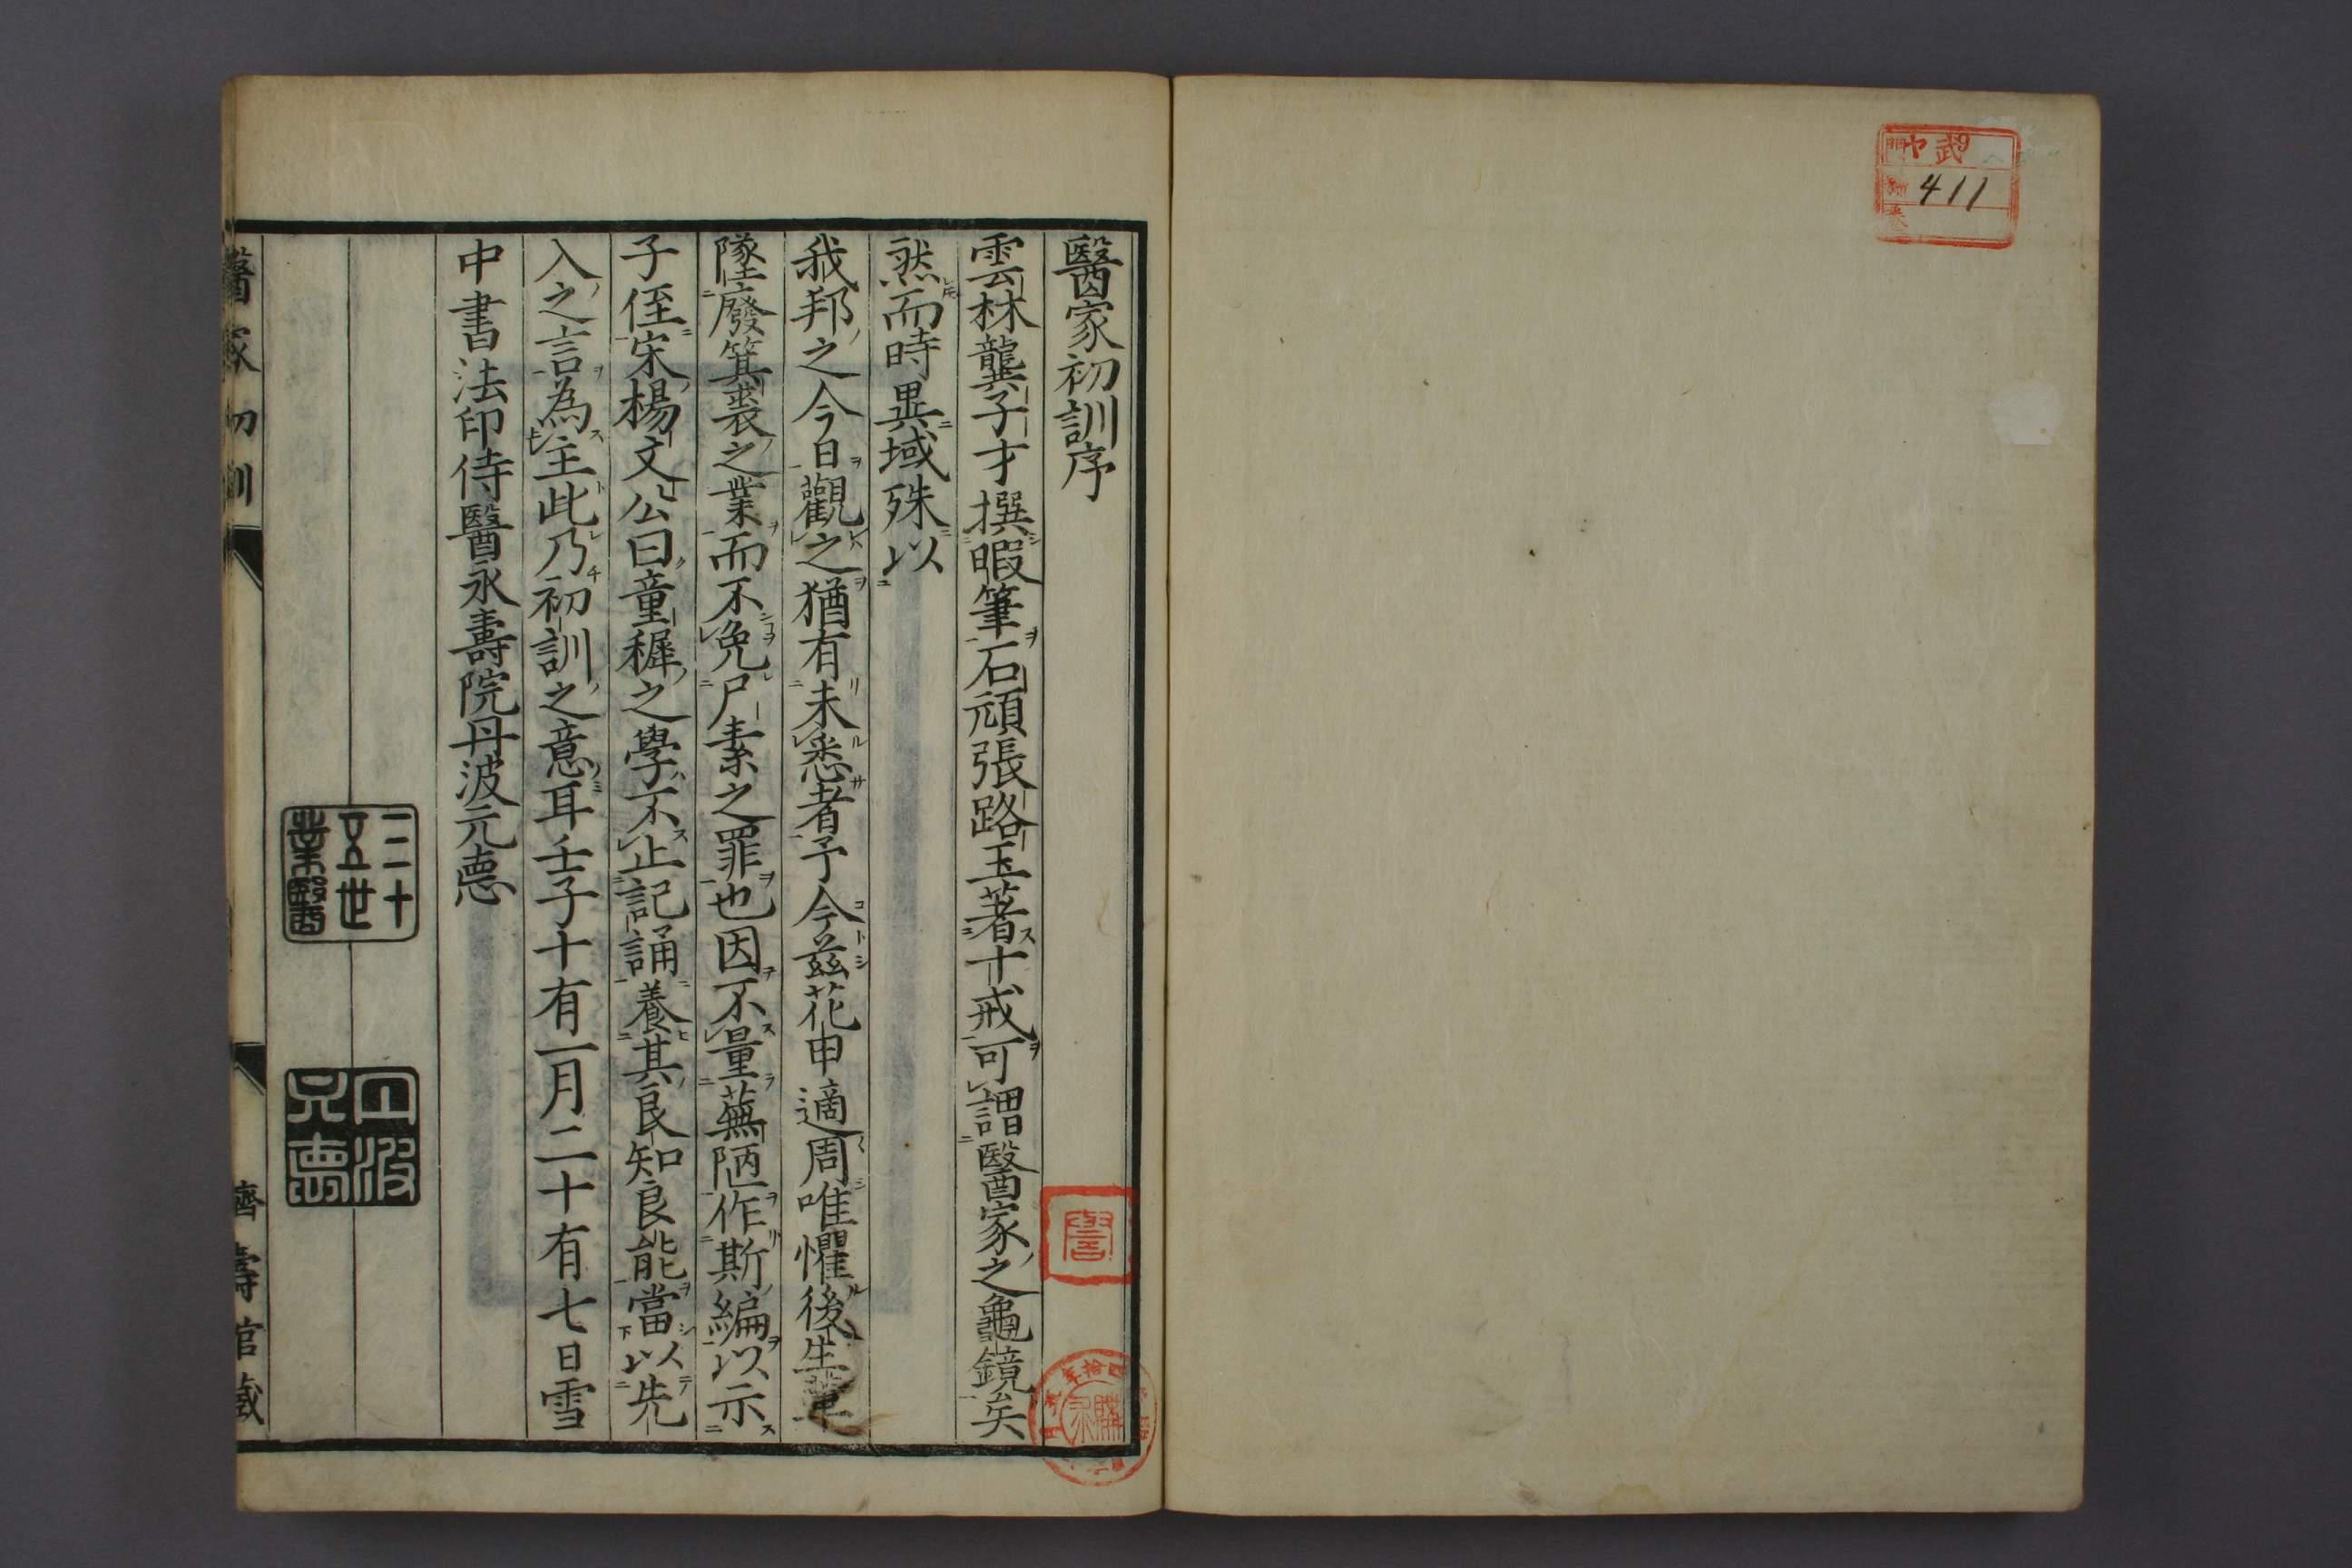 411
醫家初訓序
雲林龔子才撰暇筆石頑張路玉著十戒可謂醫家之龜鏡矣
然而時異域殊以
我邦之今日觀之猶有未悉者予今茲花申適周唯懼後生輩
墜廢箕裘之業而不免尸素之罪也因不量蕪陋作斯編以示
子侄宋楊文公曰童穉之學不止記誦養其良知良能當以先
入之言為主此乃初訓之意耳壬子十有一月二十有七日雪
中書法印侍醫永壽院丹波元悳
二十
五世
業醫
丹波
元悳
醫家初訓
躋壽館藏